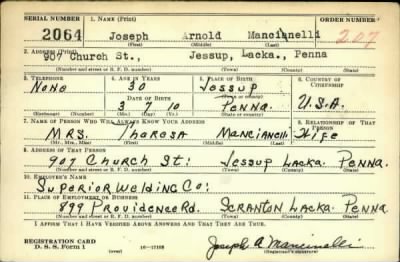 SERIAL NUMBER 1. NAME (Print) ORDER NUMBER
2064 Joseph Arnold Mancinnelli 207
(First) (Middle) (Last)
2. ADDRESS (Print)
907 Church St., Jessup, Lacka., Penna
(Number and street or R. F. D. number) (Town) (County) (State)
3. TELEPHONE 4. AGE IN YEARS 5. PLACE OF BIRTH 6. COUNTRY OF CITIZENSHIP
None 30 Jessup
DATE OF BIRTH (Town or county)
3 7 10 Penna. U.S.A.
(Mo.) (Day) (Yr.) (State or country)
7. NAME OF PERSON WHO WILL ALWAYS KNOW YOUR ADDRESS 8. RELATIONSHIP OF THAT PERSON
Mrs. Theresa Mancianelli Wife
(Mr., Mrs., Miss) (First) (Middle) (Last)
9. ADDRESS OF THAT PERSON
907 Church St: Jessup Lacka. Penna.
(Number and street or R. F. D. number) (Town) (County) (State)
10. EMPLOYER'S NAME
Superior Welding Co:
11. PLACE OF EMPLOYMENT OR BUSINESS
899 Providence Rd. Scranton Lacka. Penna
(Number and street or R. F. D. number) (Town) (County) (State)
I AFFIRM THAT I HAVE VERIFIED ABOVE ANSWERS AND THAT THEY ARE TRUE.
REGISTRATION CARD
D. S. S. Form 1 16—17105 Joseph A Mancinelli